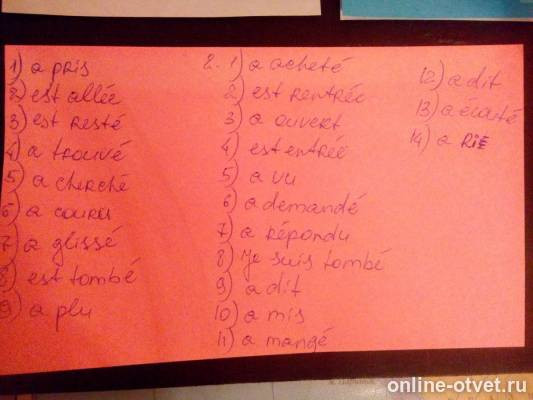 1) a pris
2) est allée
3) est resté
4) a trouvé
5) a cherché
6) a couru
7) a glissé
8) est tombé
9) a plu
2. 1) a acheté
2) est rentrée
3) a ouvert
4) est entrée
5) a vu
6) a demandé
7) a répondu
8) Je suis tombé
9) a dit
10) a mis
11) a mangé
12) a dit
13) a écouté
14) a RIE
online-otvet.ru